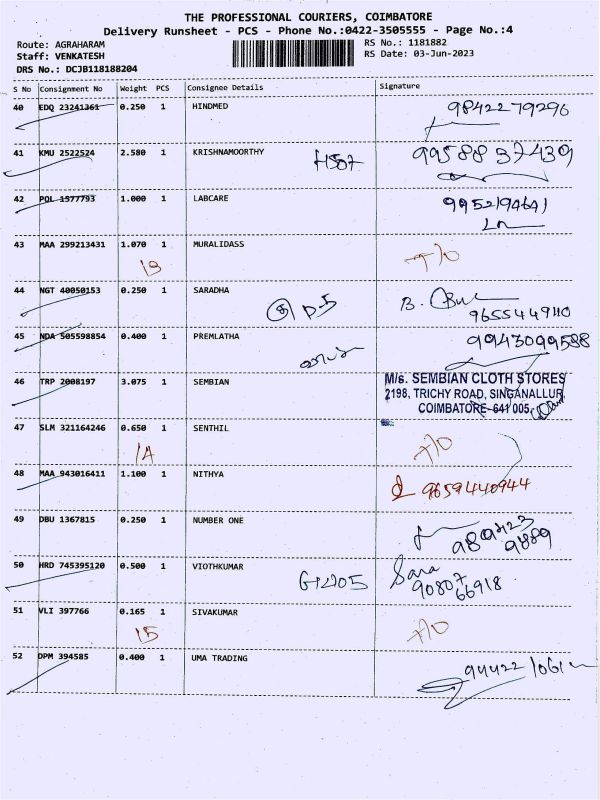 THE PROFESSIONAL COURIERS, COIMBATORE
Delivery Runsheet - PCS - Phone No.:0422-3505555 - Page No.:4
Route: AGRAHARAM
RS No.: 1181882
Staff: VENKATESH
RS Date: 03-Jun-2023
DRS No.: DCJB118188204
S No Consignment No Weight PCS Consignee Details Signature
40 EDQ 23241361 0.250 1 HINDMED 9842279296
41 KMU 2522524 2.580 1 KRISHNAMOORTHY 9958837439
42 POL 1577793 1.000 1 LABCARE 9952194641
43 MAA 299213431 1.070 1 MURALIDASS T/O
13
44 NGT 40050153 0.250 1 SARADHA B.
9655449110
45 NDA 505598854 0.400 1 PREMLATHA 9943099588
46 TRP 2008197 3.075 1 SEMBIAN M/s. SEMBIAN CLOTH STORES
2198, TRICHY ROAD, SINGANALLUR,
COIMBATORE-641 005.
47 SLM 321164246 0.650 1 SENTHIL T/O
14
48 MAA 943016411 1.100 1 NITHYA 9659440944
49 DBU 1367815 0.250 1 NUMBER ONE 989423
9889
50 HRD 745395120 0.500 1 VIOTHKUMAR Sara
90807
66918
51 VLI 397766 0.165 1 SIVAKUMAR T/O
15
52 DPM 394585 0.400 1 UMA TRADING